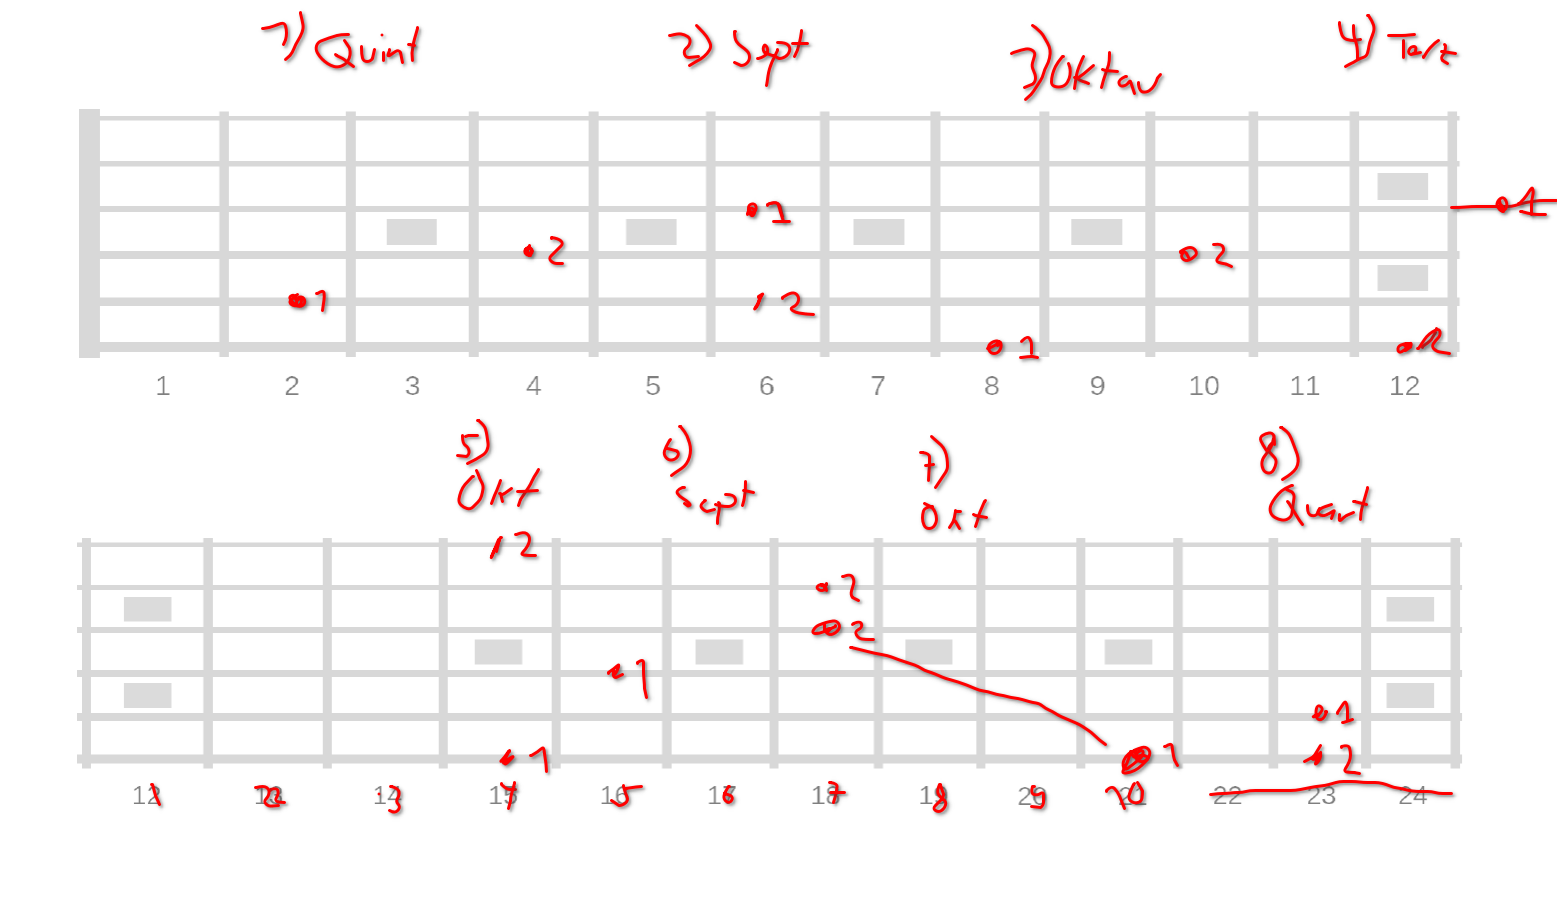 1) Quint 2) Sept 3) Oktav 4) Terz
1
2
1
2
1
2
1
2
1 2 3 4 5 6 7 8 9 10 11 12
5) 6) 7) 8)
Okt Sept Okt Quart
2
2
2
1
1
1
1
2
12 13 14 15 16 17 18 19 20 21 22 23 24
1 2 3 4 5 6 7 8 9 10